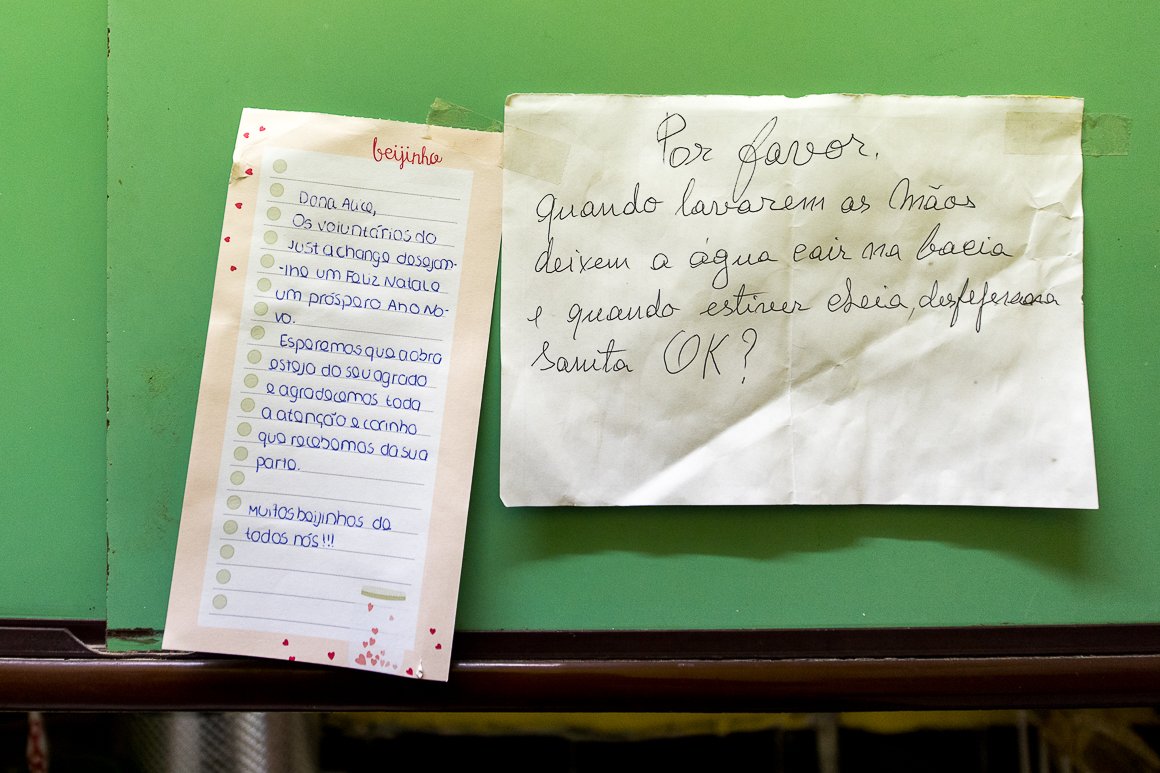 beijinho
Dona Alice,
Os voluntários do
Just a change desejam-
-lhe um Feliz Natal e
um próspero Ano No-
vo.
Esperamos que a obra
esteja do seu agrado
e agradecemos toda
a atenção e carinho
que recebemos da sua
parte.
Muitos beijinhos de
todos nós!!!
Por favor.
quando lavarem as Mãos
deixem a água cair na bacia
e quando estiver cheia,
Sanita OK?